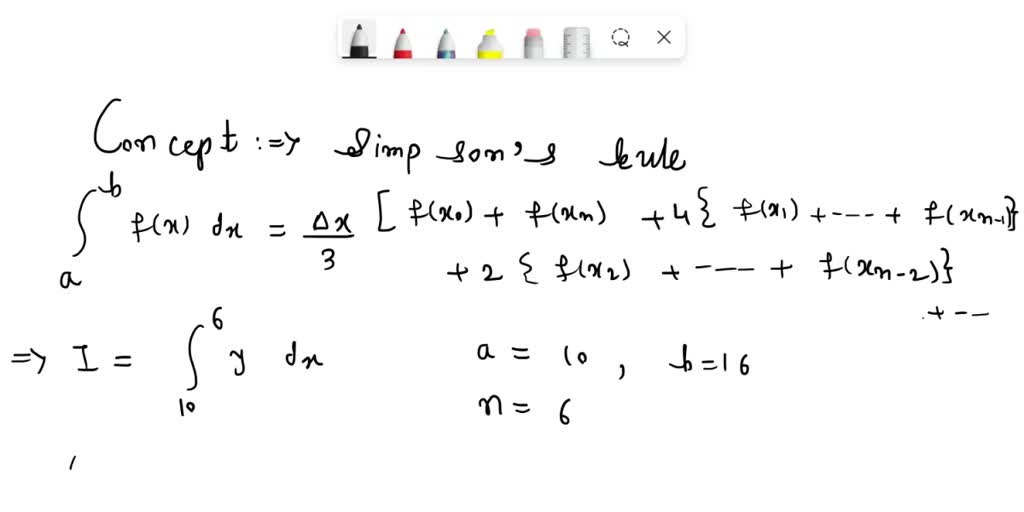 Concept :⇒ Simpson's Rule
∫_a^b f(x) dx = Δx/3 [ f(x₀) + f(xₙ) + 4 { f(x₁) + ---- + f(xₙ₋₁)}
+ 2 { f(x₂) + ---- + f(xₙ₋₂)}
+ --
⇒ I = ∫_10^6 y dx a = 10 , b = 16
n = 6